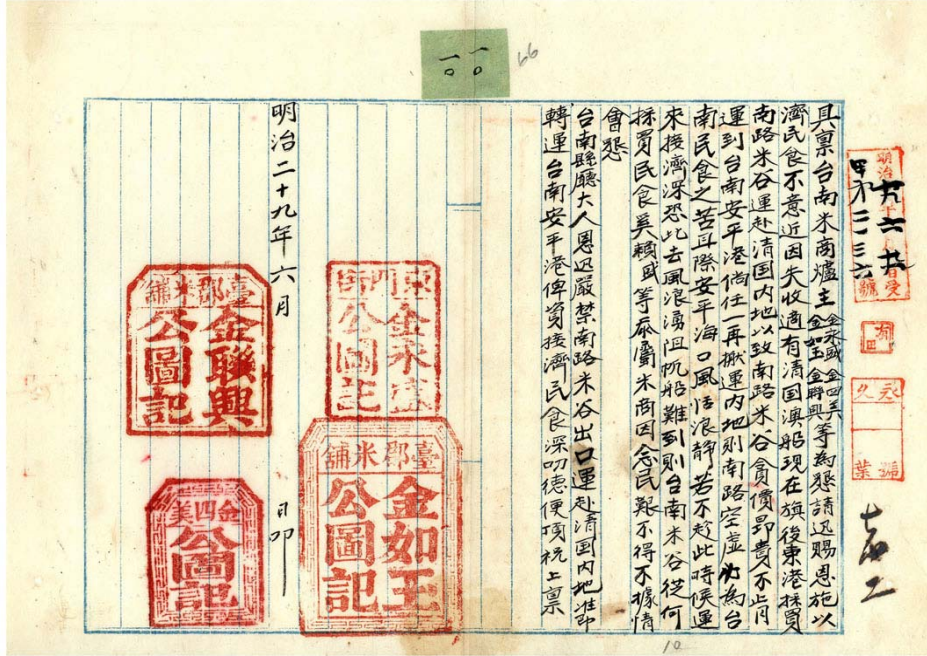 一〇
一〇
66
具稟台南米商爐主金永盛金四美金如玉金聯興等為懇請迅賜恩施以
濟民食不意近因失收適有清国澳船現在旗後東港採買
南路米谷運赴清国内地以致南路米谷貪價昂貴不止月
運到台南安平港倘任一再搬運内地則南路空虛
南民食之苦且際安平海口風恬浪靜若不趁此時候運
來接濟深恐此去風浪湧阻帆船難到則台南米谷從何
採買民食奚賴盛等忝屬米商因念民艱不得不據情
會懇
台南縣廳大人恩迅嚴禁南路米谷出口運赴清国内地准即
轉運台南安平港俾資接濟民食深叨德便頂祝上稟
明治二十九年六月 日叩
東門街
金永盛
公圖記
臺郡米舖
金如玉
公圖記
臺郡米舖
金聯興
公圖記
金四美
公圖記
永久
10